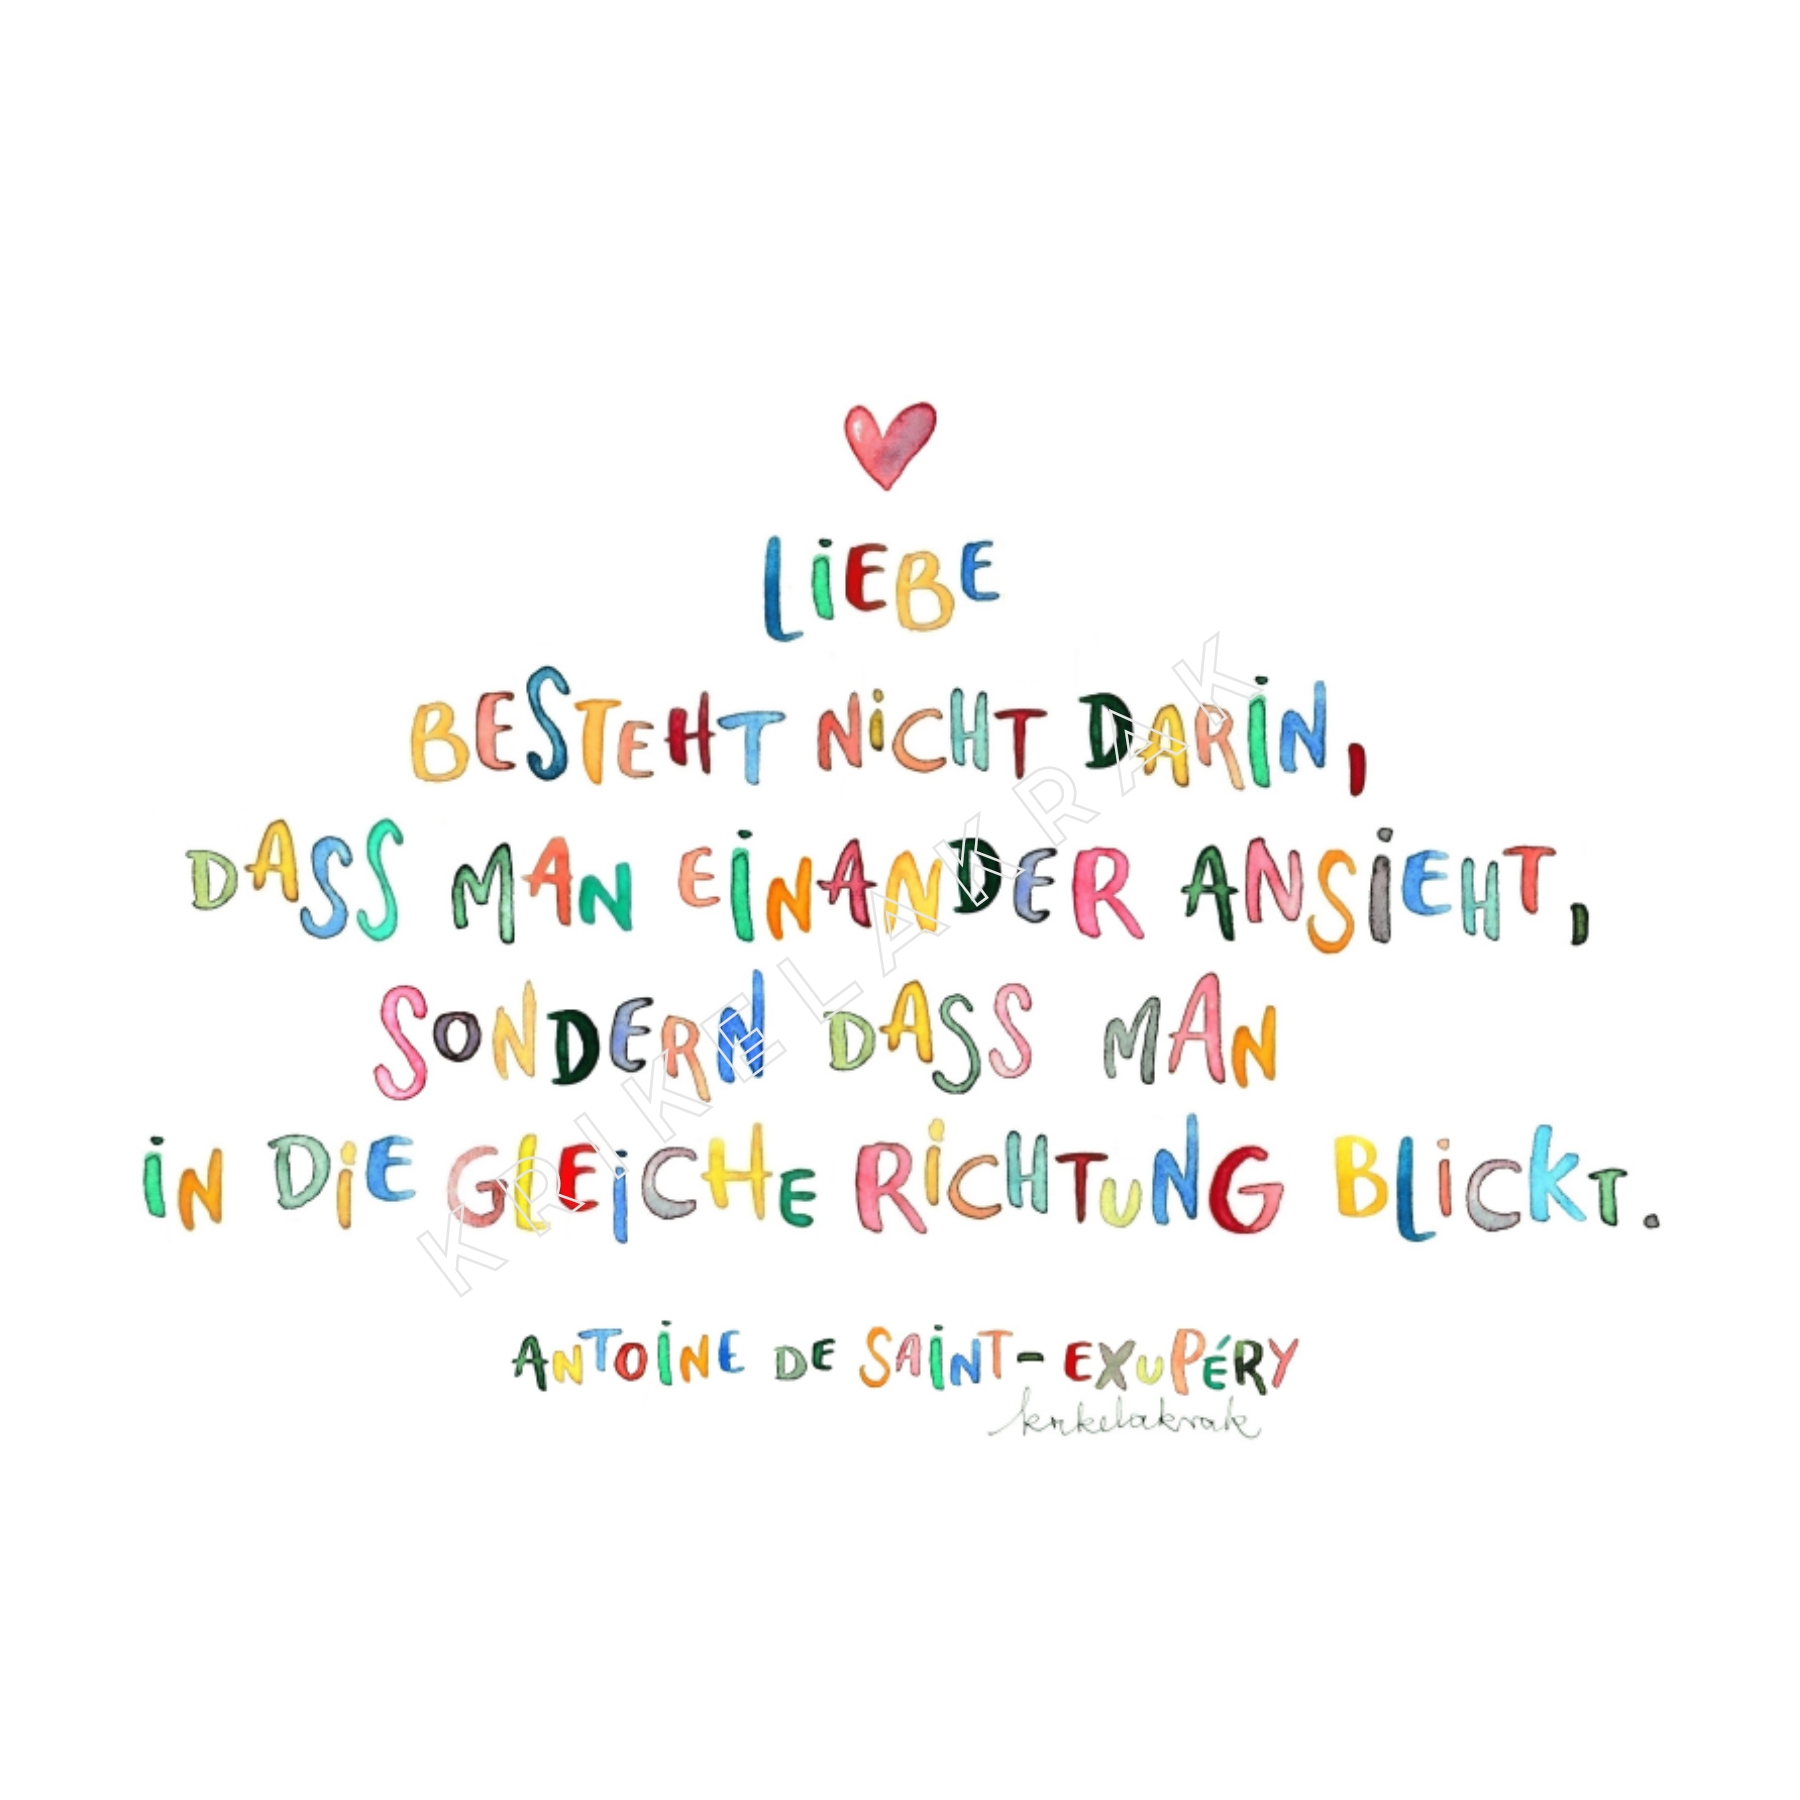 LiEBE
BESTEHT NiCHT DARiN,
DASS MAN EiNANDER ANSiEHT,
SONDERN DASS MAN
iN DiE GLEiCHE RiCHTUNG BLiCKT.
ANTOiNE DE SAiNT-EXUPÉRY
krikelakrak
KRIKELAKRAK